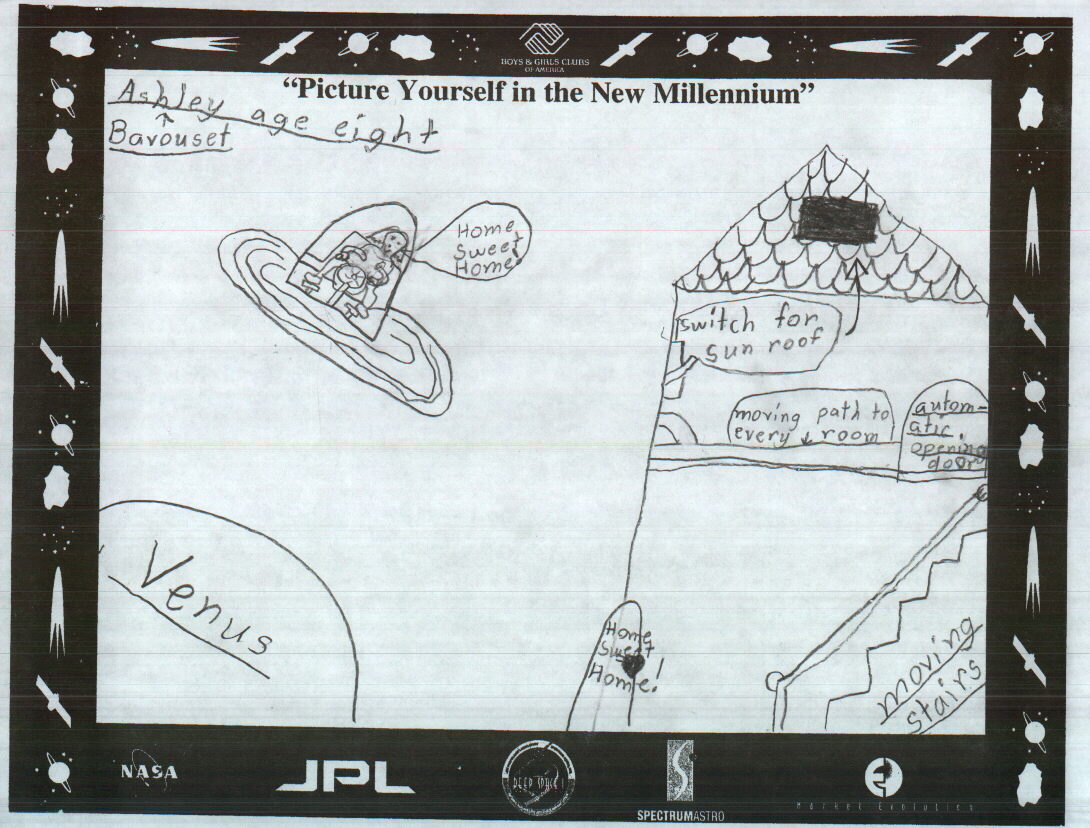 BOYS & GIRLS CLUBS
OF AMERICA
“Picture Yourself in the New Millennium”
Ashley age eight
Barouset
Home
Sweet
Home!
switch for
sun roof
moving path to
every room
autom-
atic
opening
door
Venus
Home
Sweet
Home!
moving
stairs
NASA
JPL
DEEP SPACE 1
SPECTRUMASTRO
Market Evolution